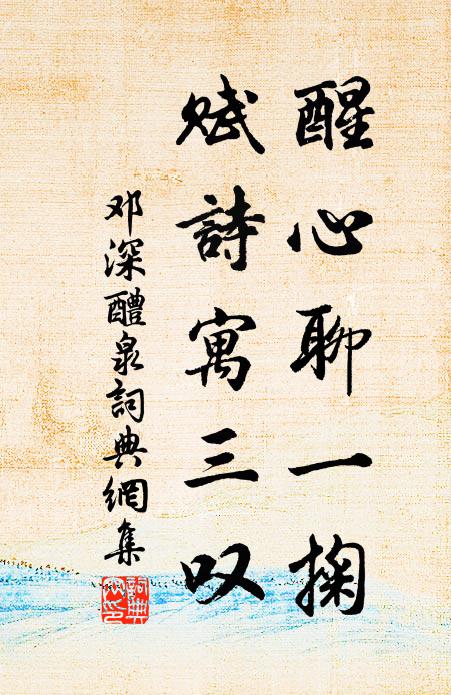 醒心聊一掬
赋詩寓三叹
邓深醴泉詞典網集